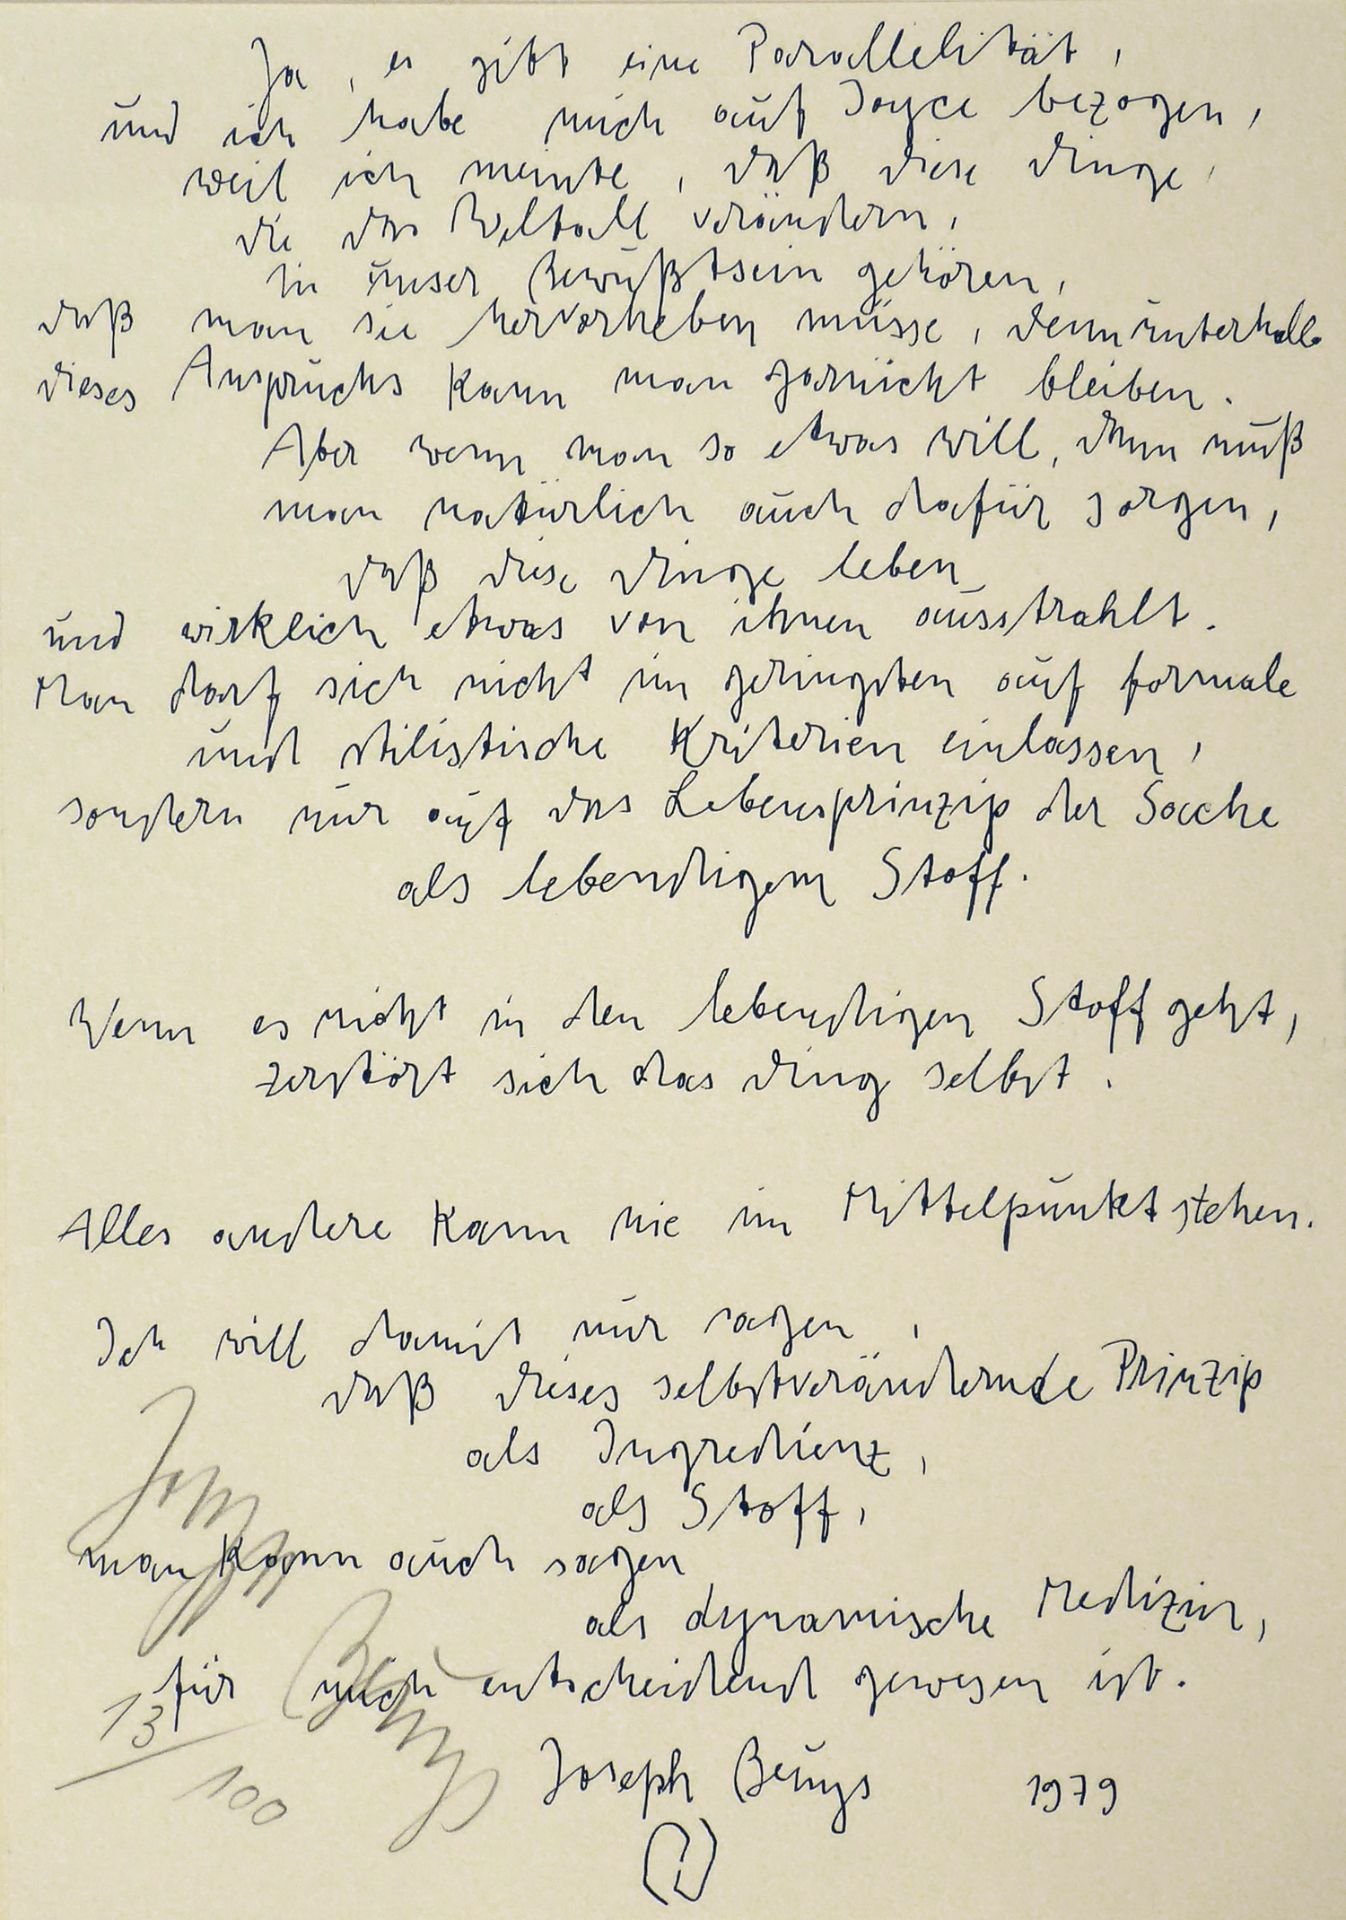 Ja, es gibt eine Parallelität,
und ich habe mich auf Joyce bezogen,
weil ich meinte, daß diese dinge,
die das Weltall verändern,
in unser Bewußtsein gehören,
daß man sie hervorheben müsse, denn unterhalb
dieses Anspruchs kann man garnicht bleiben.
Aber wenn man so etwas will, dann muß
man natürlich auch dafür sorgen,
daß diese dinge leben
und wirklich etwas von ihnen ausstrahlt.
Man darf sich nicht im geringsten auf formale
und stilistische Kriterien einlassen,
sondern nur auf das Lebensprinzip der Sache
als lebendigem Stoff.
Wenn es nicht in den lebendigen Stoff geht,
zerstört sich das ding selbst.
Alles andere kann nie im Mittelpunkt stehen.
Ich will damit nur sagen,
daß dieses selbstverändernde Prinzip
als Ingredienz,
als Stoff,
man kann auch sagen
als dynamische Medizin,
für mich entscheidend gewesen ist.
Joseph Beuys 1979
Joseph Beuys
13/100